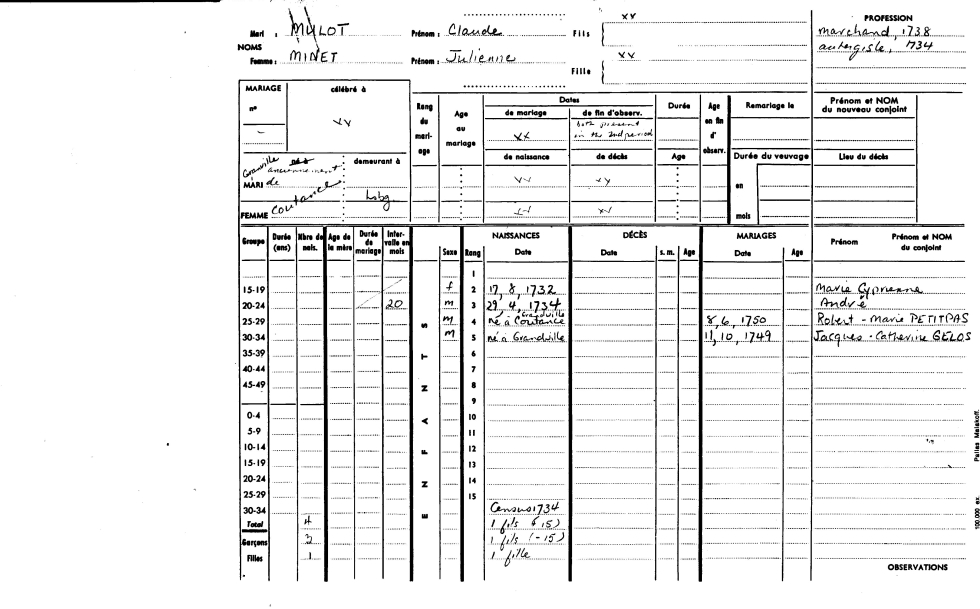 Mari : MULOT Prénom : Claude Fils xx
NOMS
Femme : MINET Prénom : Julienne Fille xx
PROFESSION
marchand, 1738
aubergiste, 1734
MARIAGE célébré à
n° xx
Rang du mari- age
Age au mariage
Dates
de mariage de fin d'observ.
xx both present in the 2nd period
de naissance de décès
xx xx
xx xx
Durée
Age
Age en fin d' observ.
Remariage le
Durée du veuvage
en
mois
Prénom et NOM du nouveau conjoint
Lieu du décès
demeurant à
Granville
anciennement
MARI de
Coutance
Lsbg
FEMME
Groupe Durée (ans) Nbre de nais. Age de la mère Durée de mariage Inter- valle en mois ENFANTS Sexe Rang NAISSANCES Date DÉCÈS Date s. m. Age MARIAGES Date Age Prénom Prénom et NOM du conjoint
1
15-19 f 2 17, 8, 1732 Marie Cyprienne
20-24 20 m 3 29, 4, 1734 André
Grandville
25-29 m 4 né à Coutance 8, 6, 1750 Robert - Marie PETITPAS
30-34 m 5 né à Grandville 11, 10, 1749 Jacques - Catherine GELOS
35-39 6
40-44 7
45-49 8
9
0-4 10
5-9 11
10-14 12
15-19 13
20-24 14
25-29 15
30-34 Census 1734
Total 4 1 fils (+15)
Garçons 3 1 fils (-15)
Filles 1 1 fille
OBSERVATIONS
100.000 ex. Pallas Malakoff.